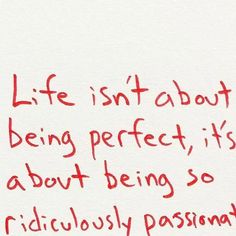 Life isn't about
being perfect, it's
about being so
ridiculously passionat